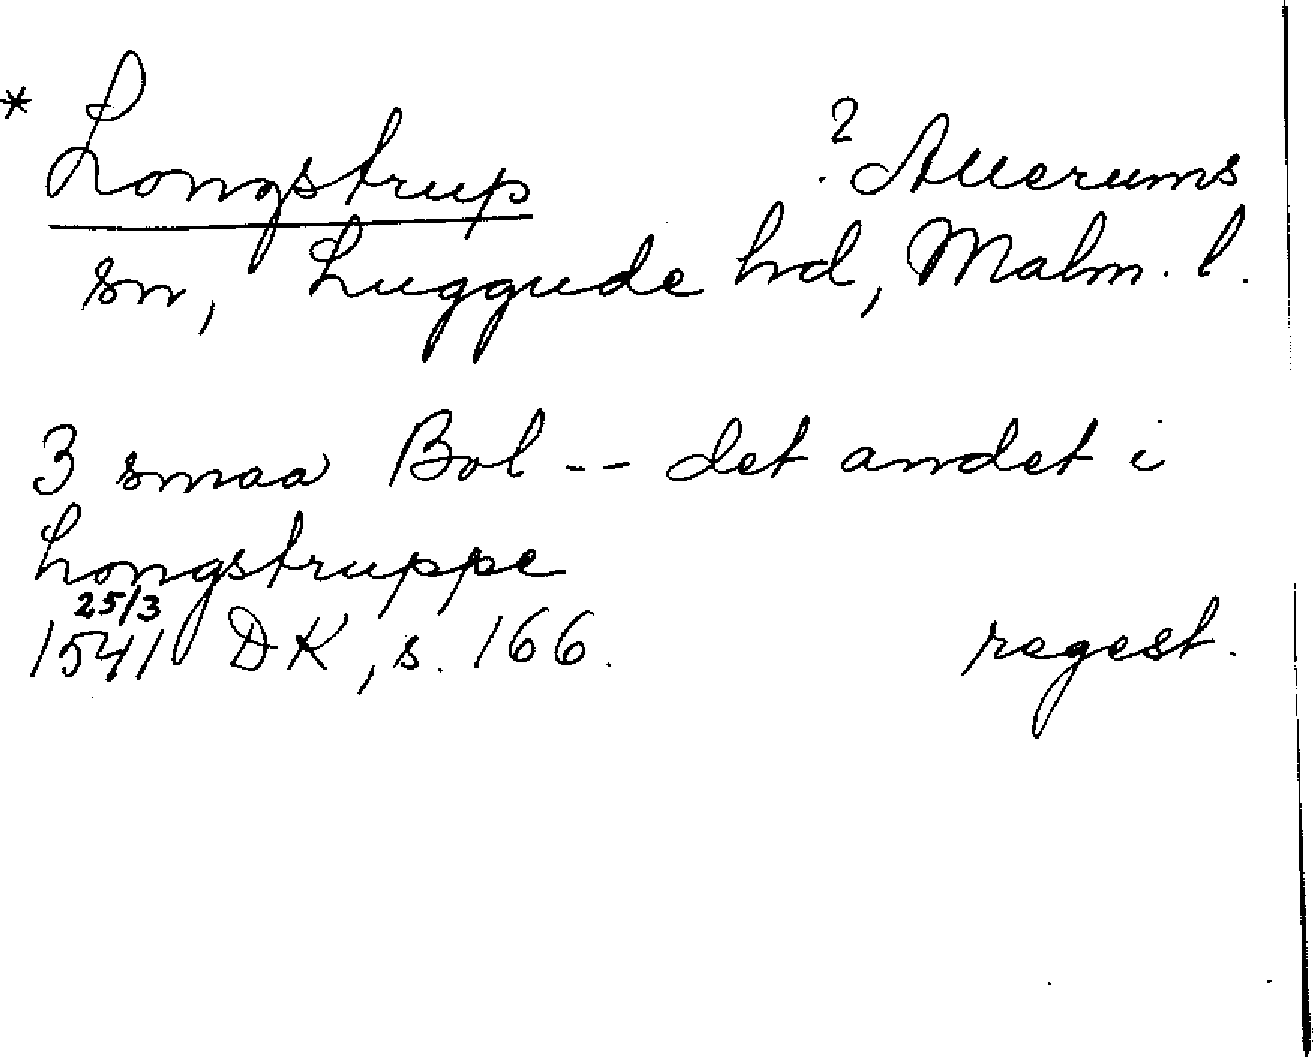 * Longstrup ? Allerums
sn, Luggude hd, Malm. l.
3 smaa Bol -- det andet i
Longstruppe
25/3
1541 DK, s. 166. regest.